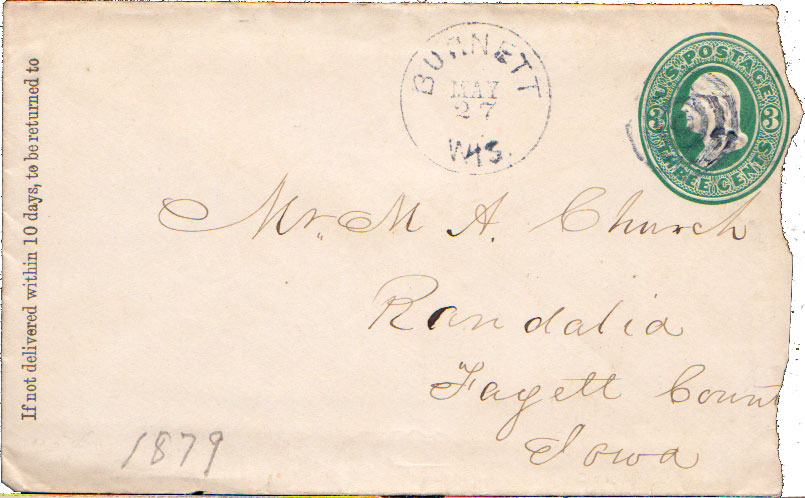 If not delivered within 10 days, to be returned to
BURNETT
MAY
27
WIS.
U.S. POSTAGE
3 3
THREE CENTS
Mr. M A. Church
Randalia
Fayett Count
Iowa
1879